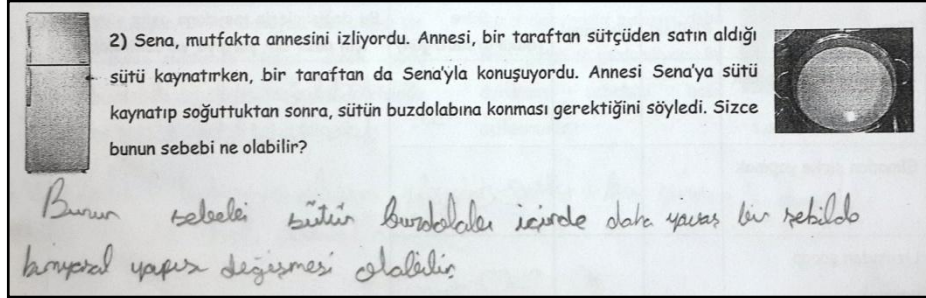 2) Sena, mutfakta annesini izliyordu. Annesi, bir taraftan sütçüden satın aldığı
sütü kaynatırken, bir taraftan da Sena'yla konuşuyordu. Annesi Sena'ya sütü
kaynatıp soğuttuktan sonra, sütün buzdolabına konması gerektiğini söyledi. Sizce
bunun sebebi ne olabilir?
Bunun sebebi sütün buzdolabı içinde daha yavaş bir şekilde
kimyasal yapısı değişmesi olabilir